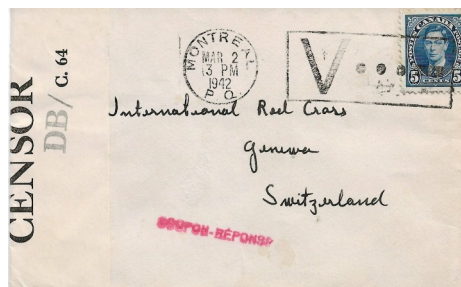 CENSOR
DB/
C. 64
MONTREAL
MAR 2
13 PM
1942
P. Q.
V
POSTES CANADA POSTAGE
5 5
International Red Cross
Geneva
Switzerland
COUPON-RÉPONSE